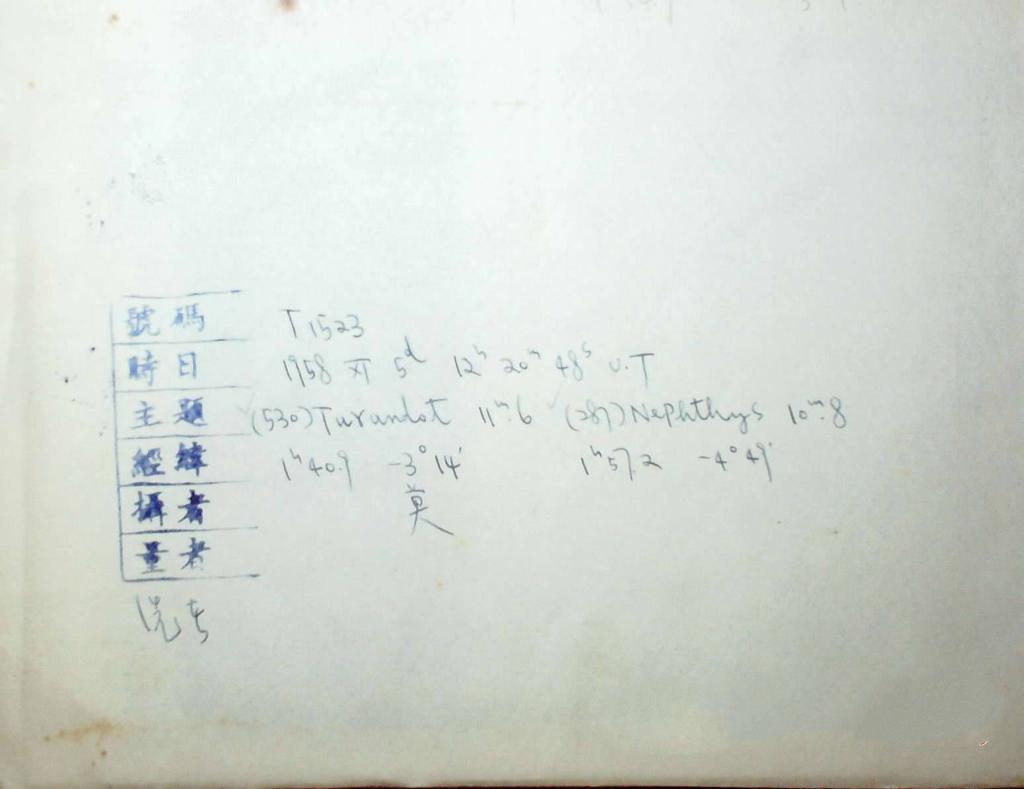 號碼 T1523
時日 1958 XI 5ᵈ 12ʰ 20ᵐ 48ˢ U.T
主題 (530) Turandot 11ᵐ.6 (287) Nephthys 10ᵐ.8
經緯 1ʰ40.9 -3°14' 1ʰ57.2 -4°49'
攝者 莫
量者
洗者